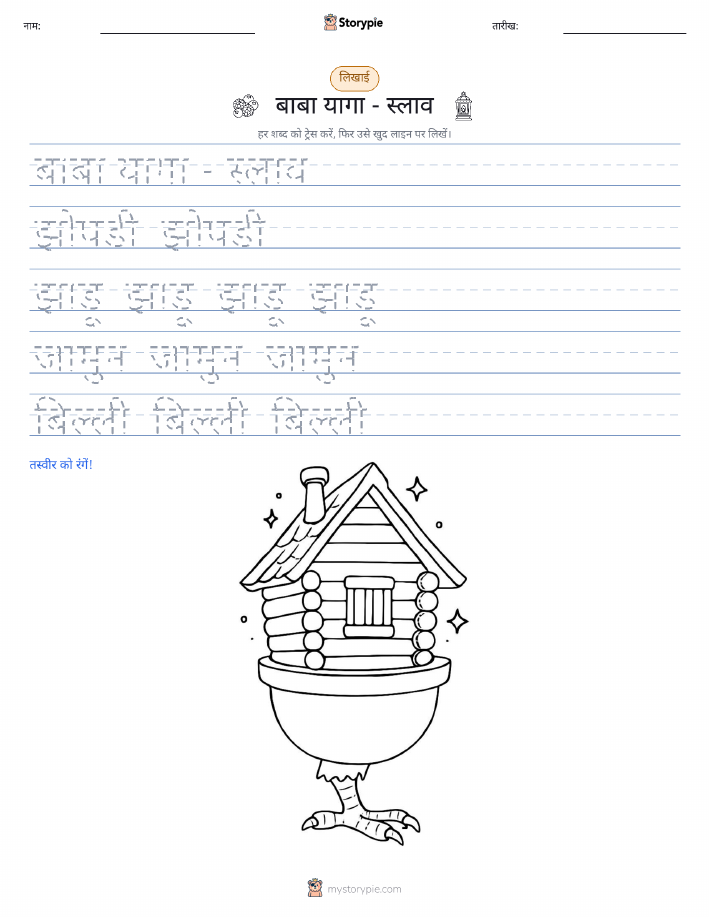 नाम:
Storypie
तारीख:
लिखाई
बाबा यागा - स्लाव
हर शब्द को ट्रेस करें, फिर उसे खुद लाइन पर लिखें।
बाबा यागा - स्लाव
झोपडी झोपडी
झाडू झाडू झाडू झाडू
जामुन जामुन जामुन
बिल्ली बिल्ली बिल्ली
तस्वीर को रंगें!
mystorypie.com